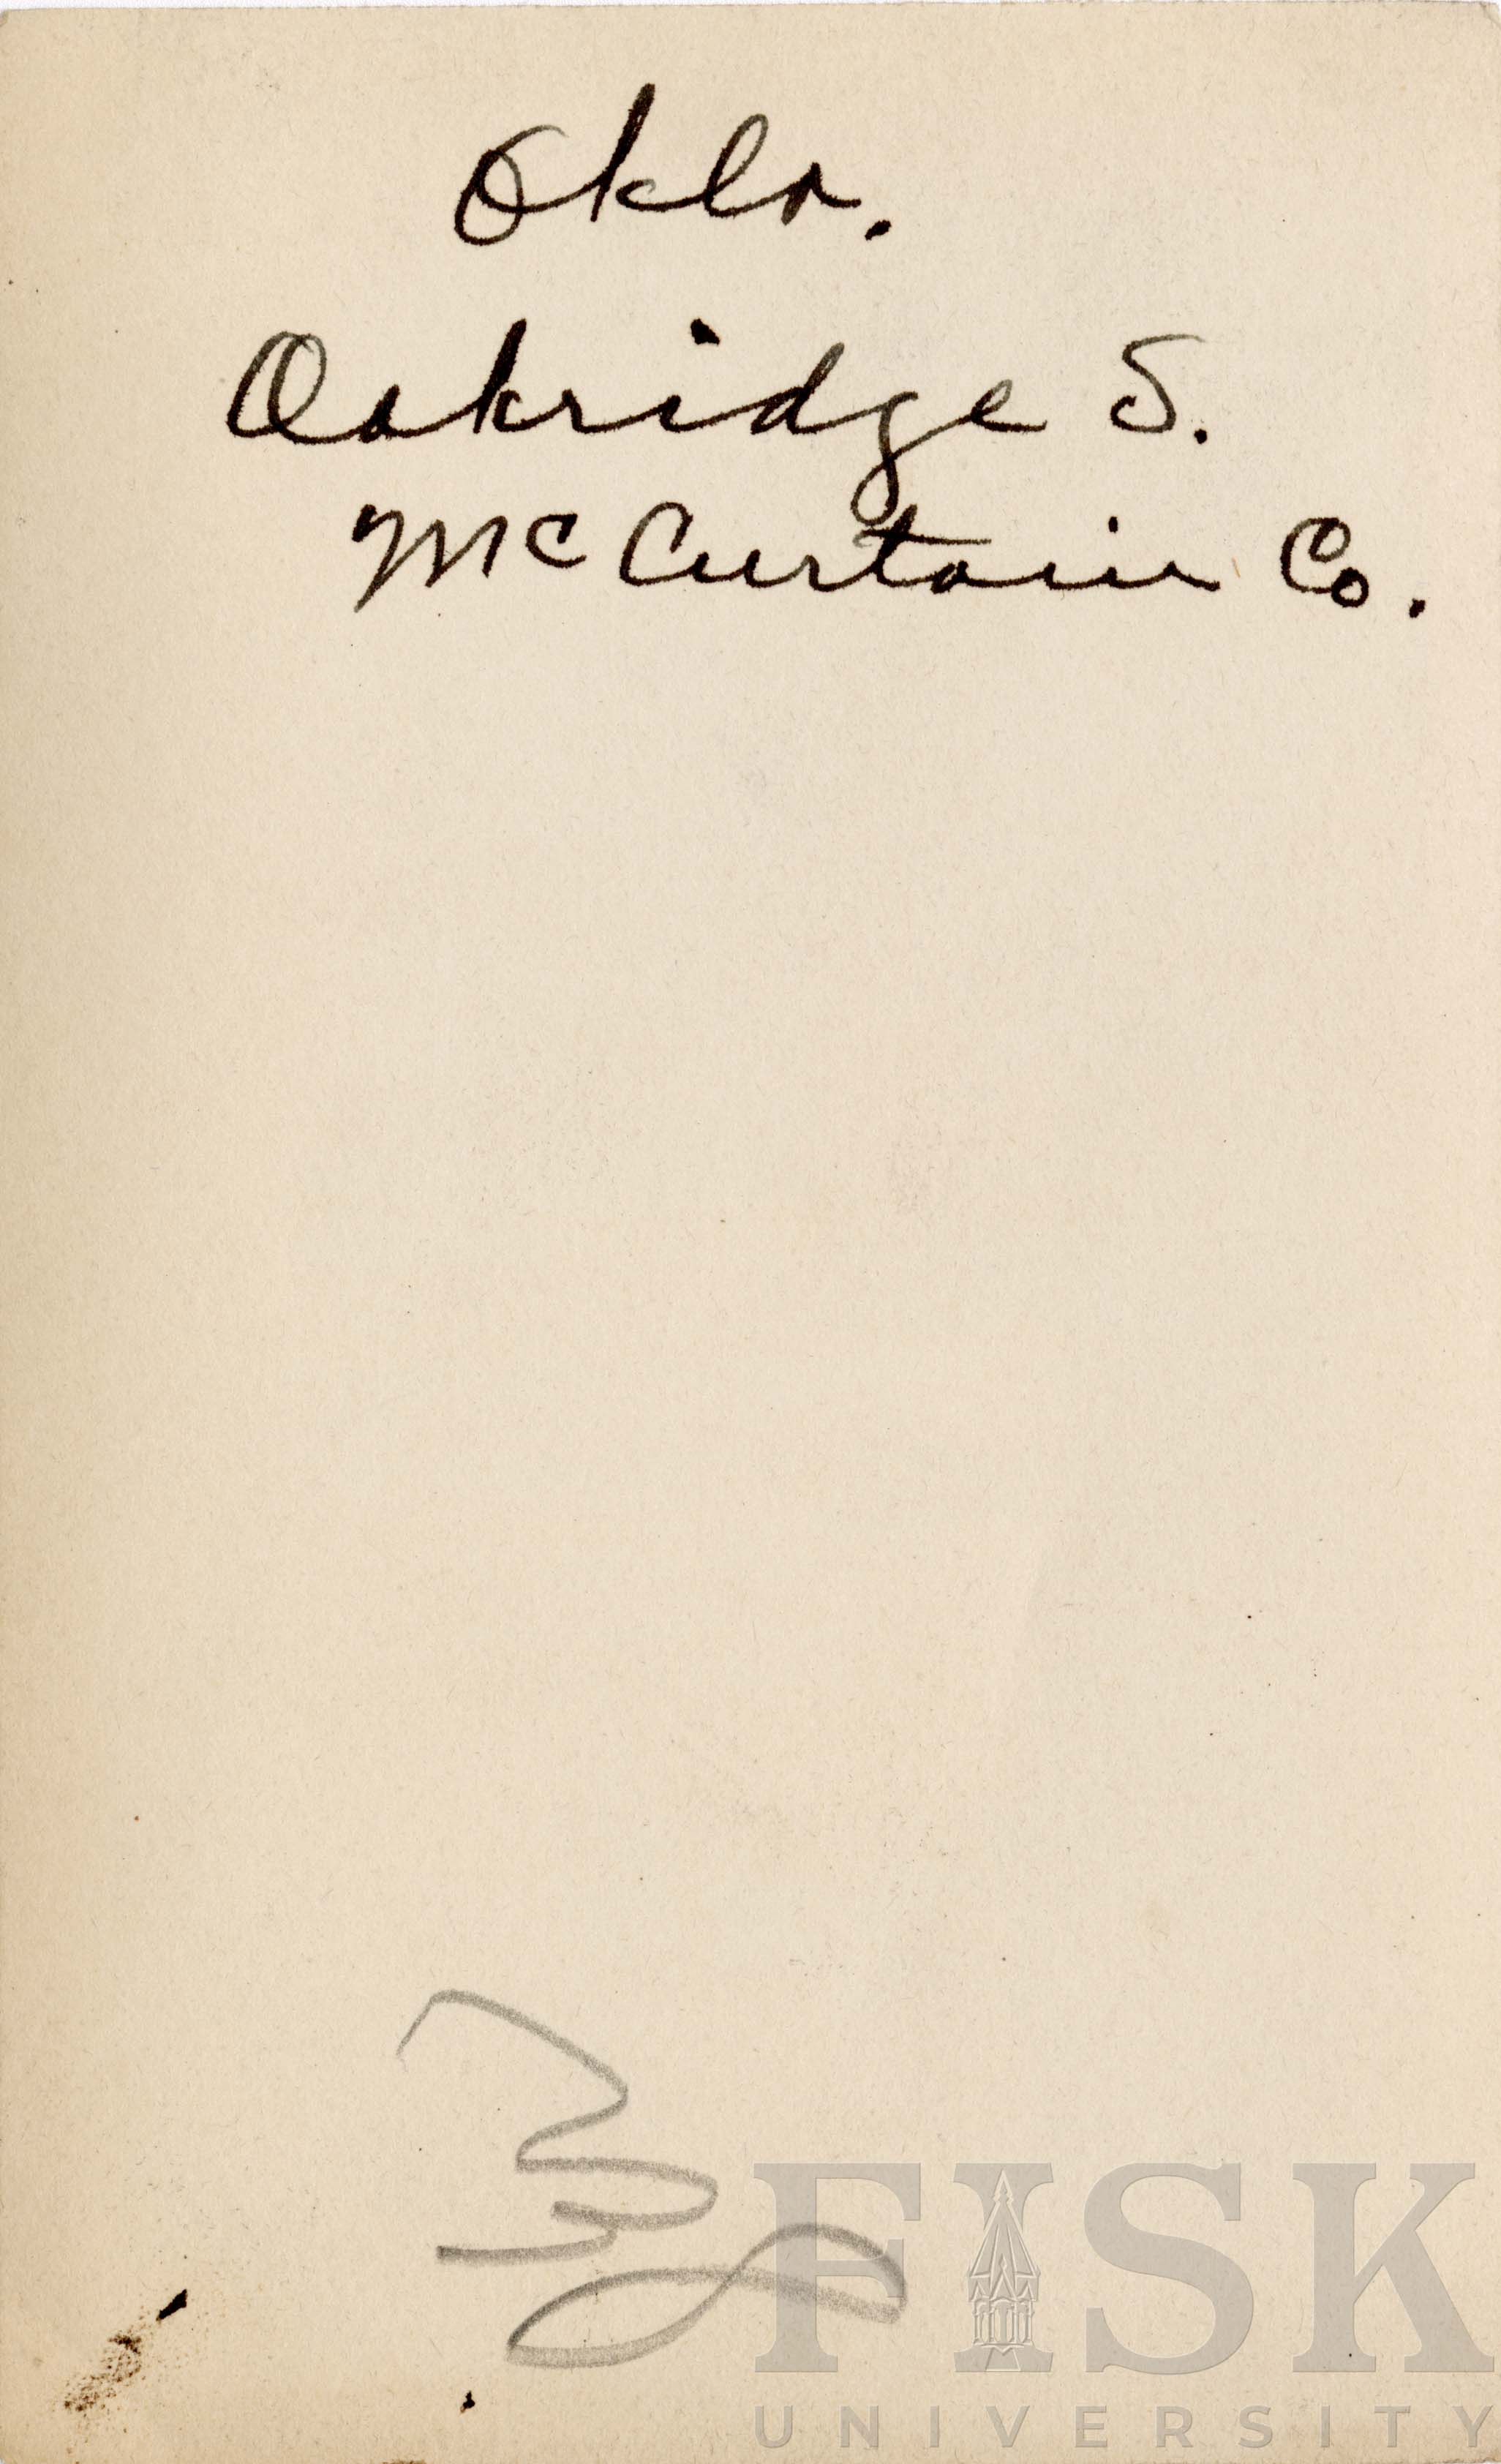 Okla.
Oakridge S.
McCurtain Co.
FISK
UNIVERSITY